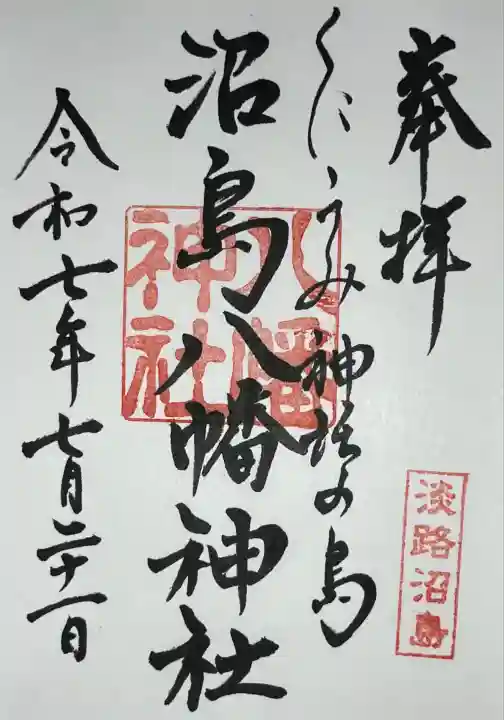 奉拝
淡路沼島
くにうみ神話の島
沼島八幡神社
八幡神社
令和七年七月二十一日